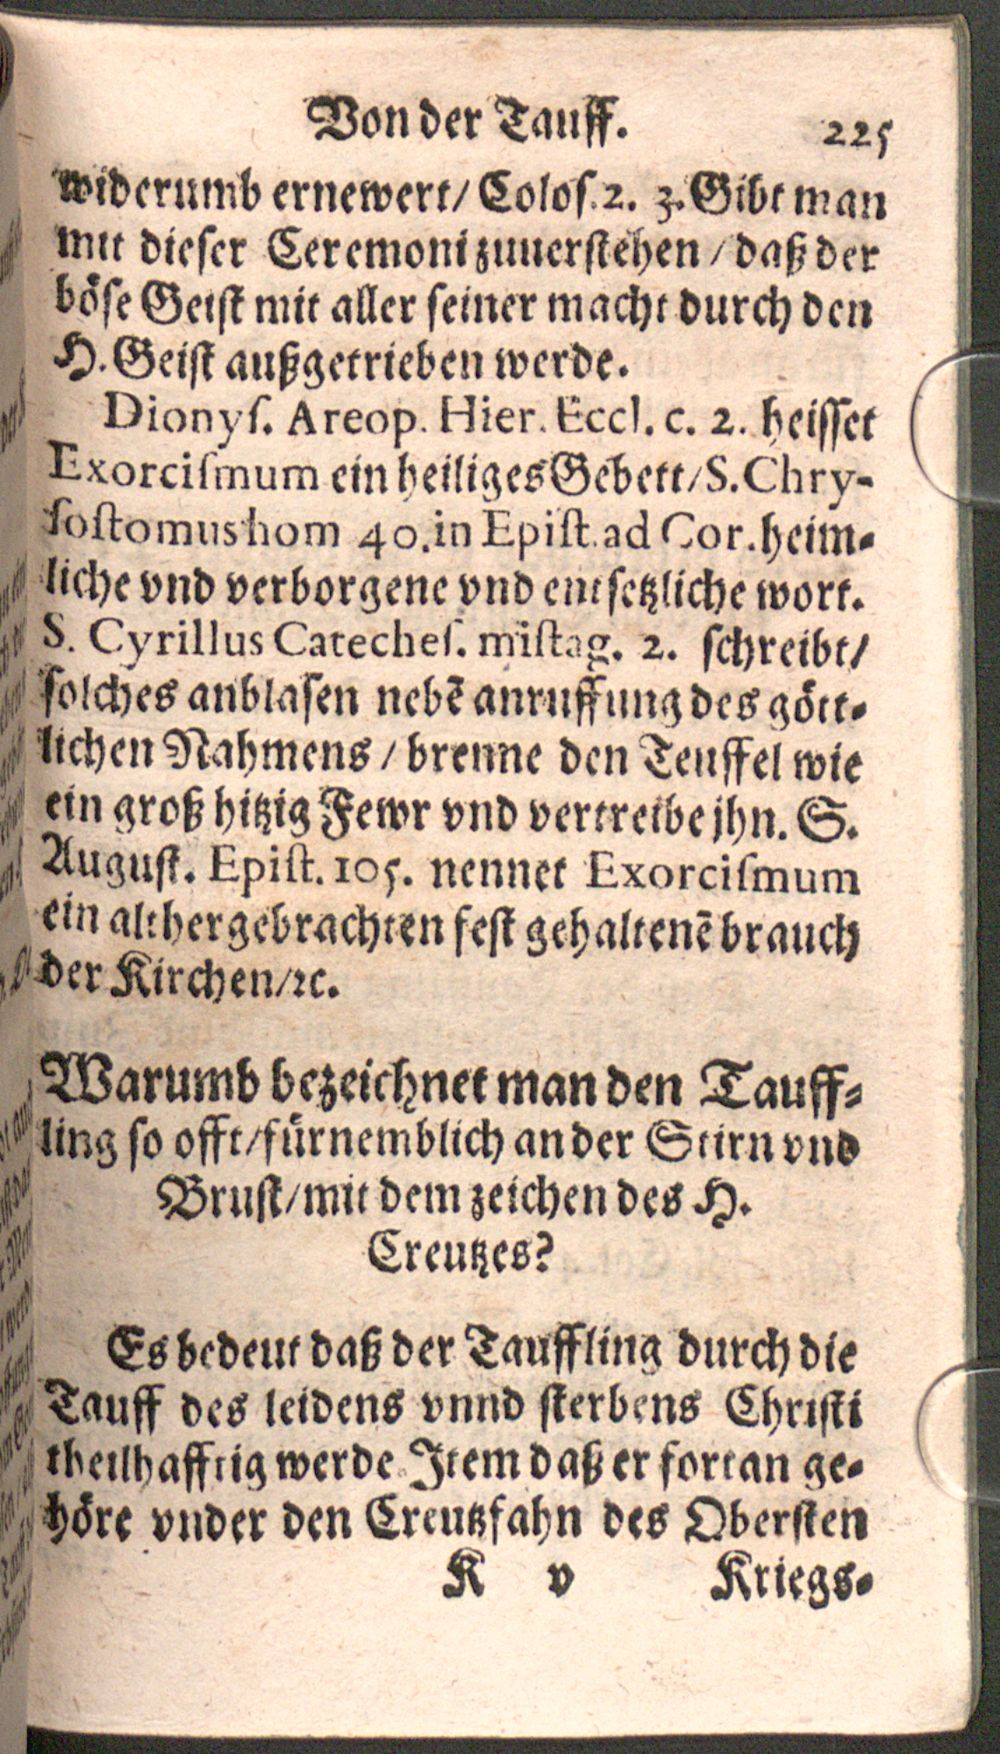 Von der Tauff. 225
widerumb ernewert/ Colos. 2. 3. Gibt man
mit dieser Ceremoni zuuerstehen / daß der
böse Geist mit aller seiner macht durch den
H. Geist außgetrieben werde.
Dionys. Areop. Hier. Eccl. c. 2. heisset
Exorcismum ein heiliges Gebett/ S. Chry-
sostomus hom 40. in Epist. ad Cor. heim-
liche vnd verborgene vnd entsetzliche wort.
S. Cyrillus Cateches. mistag. 2. schreibt/
solches anblasen nebē anruffung des gött-
lichen Nahmens / brenne den Teuffel wie
ein groß hitzig Fewr vnd vertreibe jhn. S.
August. Epist. 105. nennet Exorcismum
ein alt hergebrachten fest gehaltenē brauch
der Kirchen/ ꝛc.
Warumb bezeichnet man den Tauff-
ling so offt/ fürnemblich an der Stirn vnd
Brust/ mit dem zeichen des H.
Creutzes?
Es bedeut daß der Tauffling durch die
Tauff des leidens vnnd sterbens Christi
theilhafftig werde. Item daß er fortan ge-
höre vnder den Creutzfahn des Obersten
K v Kriegs-